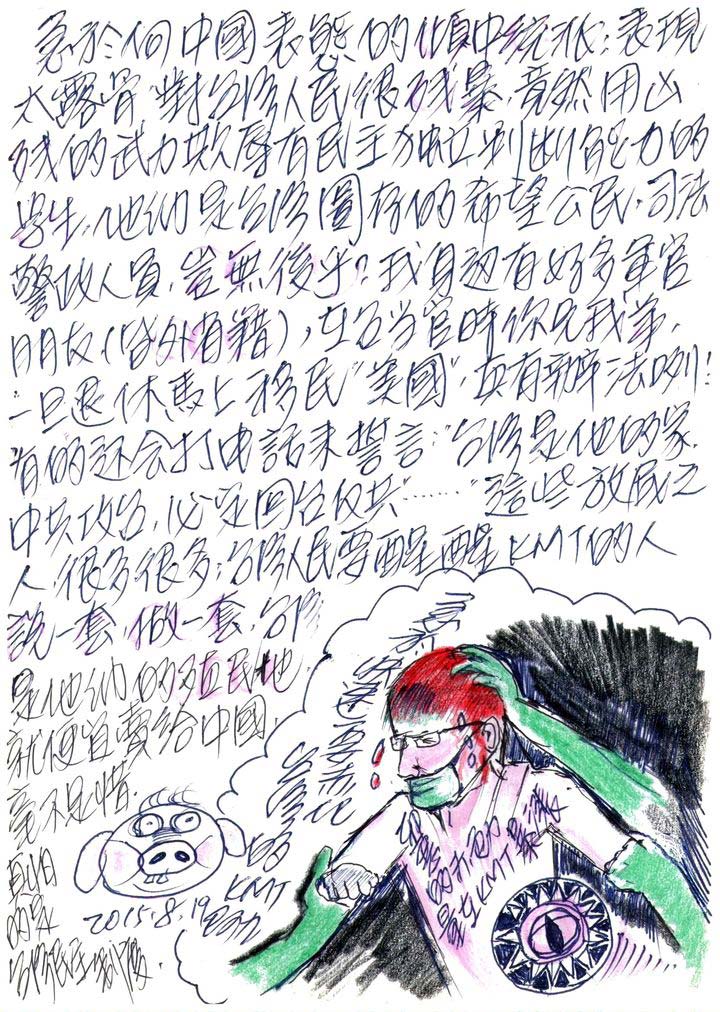 急於向中國表態的傾中統派;表現
太露骨對台灣人民很残暴,竟然用凶
残的武力欺辱有民主独立判断能力的
學生,他們是台灣圖存的希望公民,司法
警政人員,豈無後乎?我身边有好多軍官
朋友(皆外省籍),在台当官時你兄我弟,
一旦退休馬上移民"美國",真有辦法喲!
有的还会打电話来誓言:"台灣是他的家,
中共攻台,必定回台反共"……"這些放屁之
人,很多很多;台灣人民要醒醒KMT的人
說一套,做一套,台灣
是他們的殖民地
就便宜賣給中國,
毫不足惜.
可怕
的是
台灣民主倒退.
的
KMT
暴力
2015.8.19